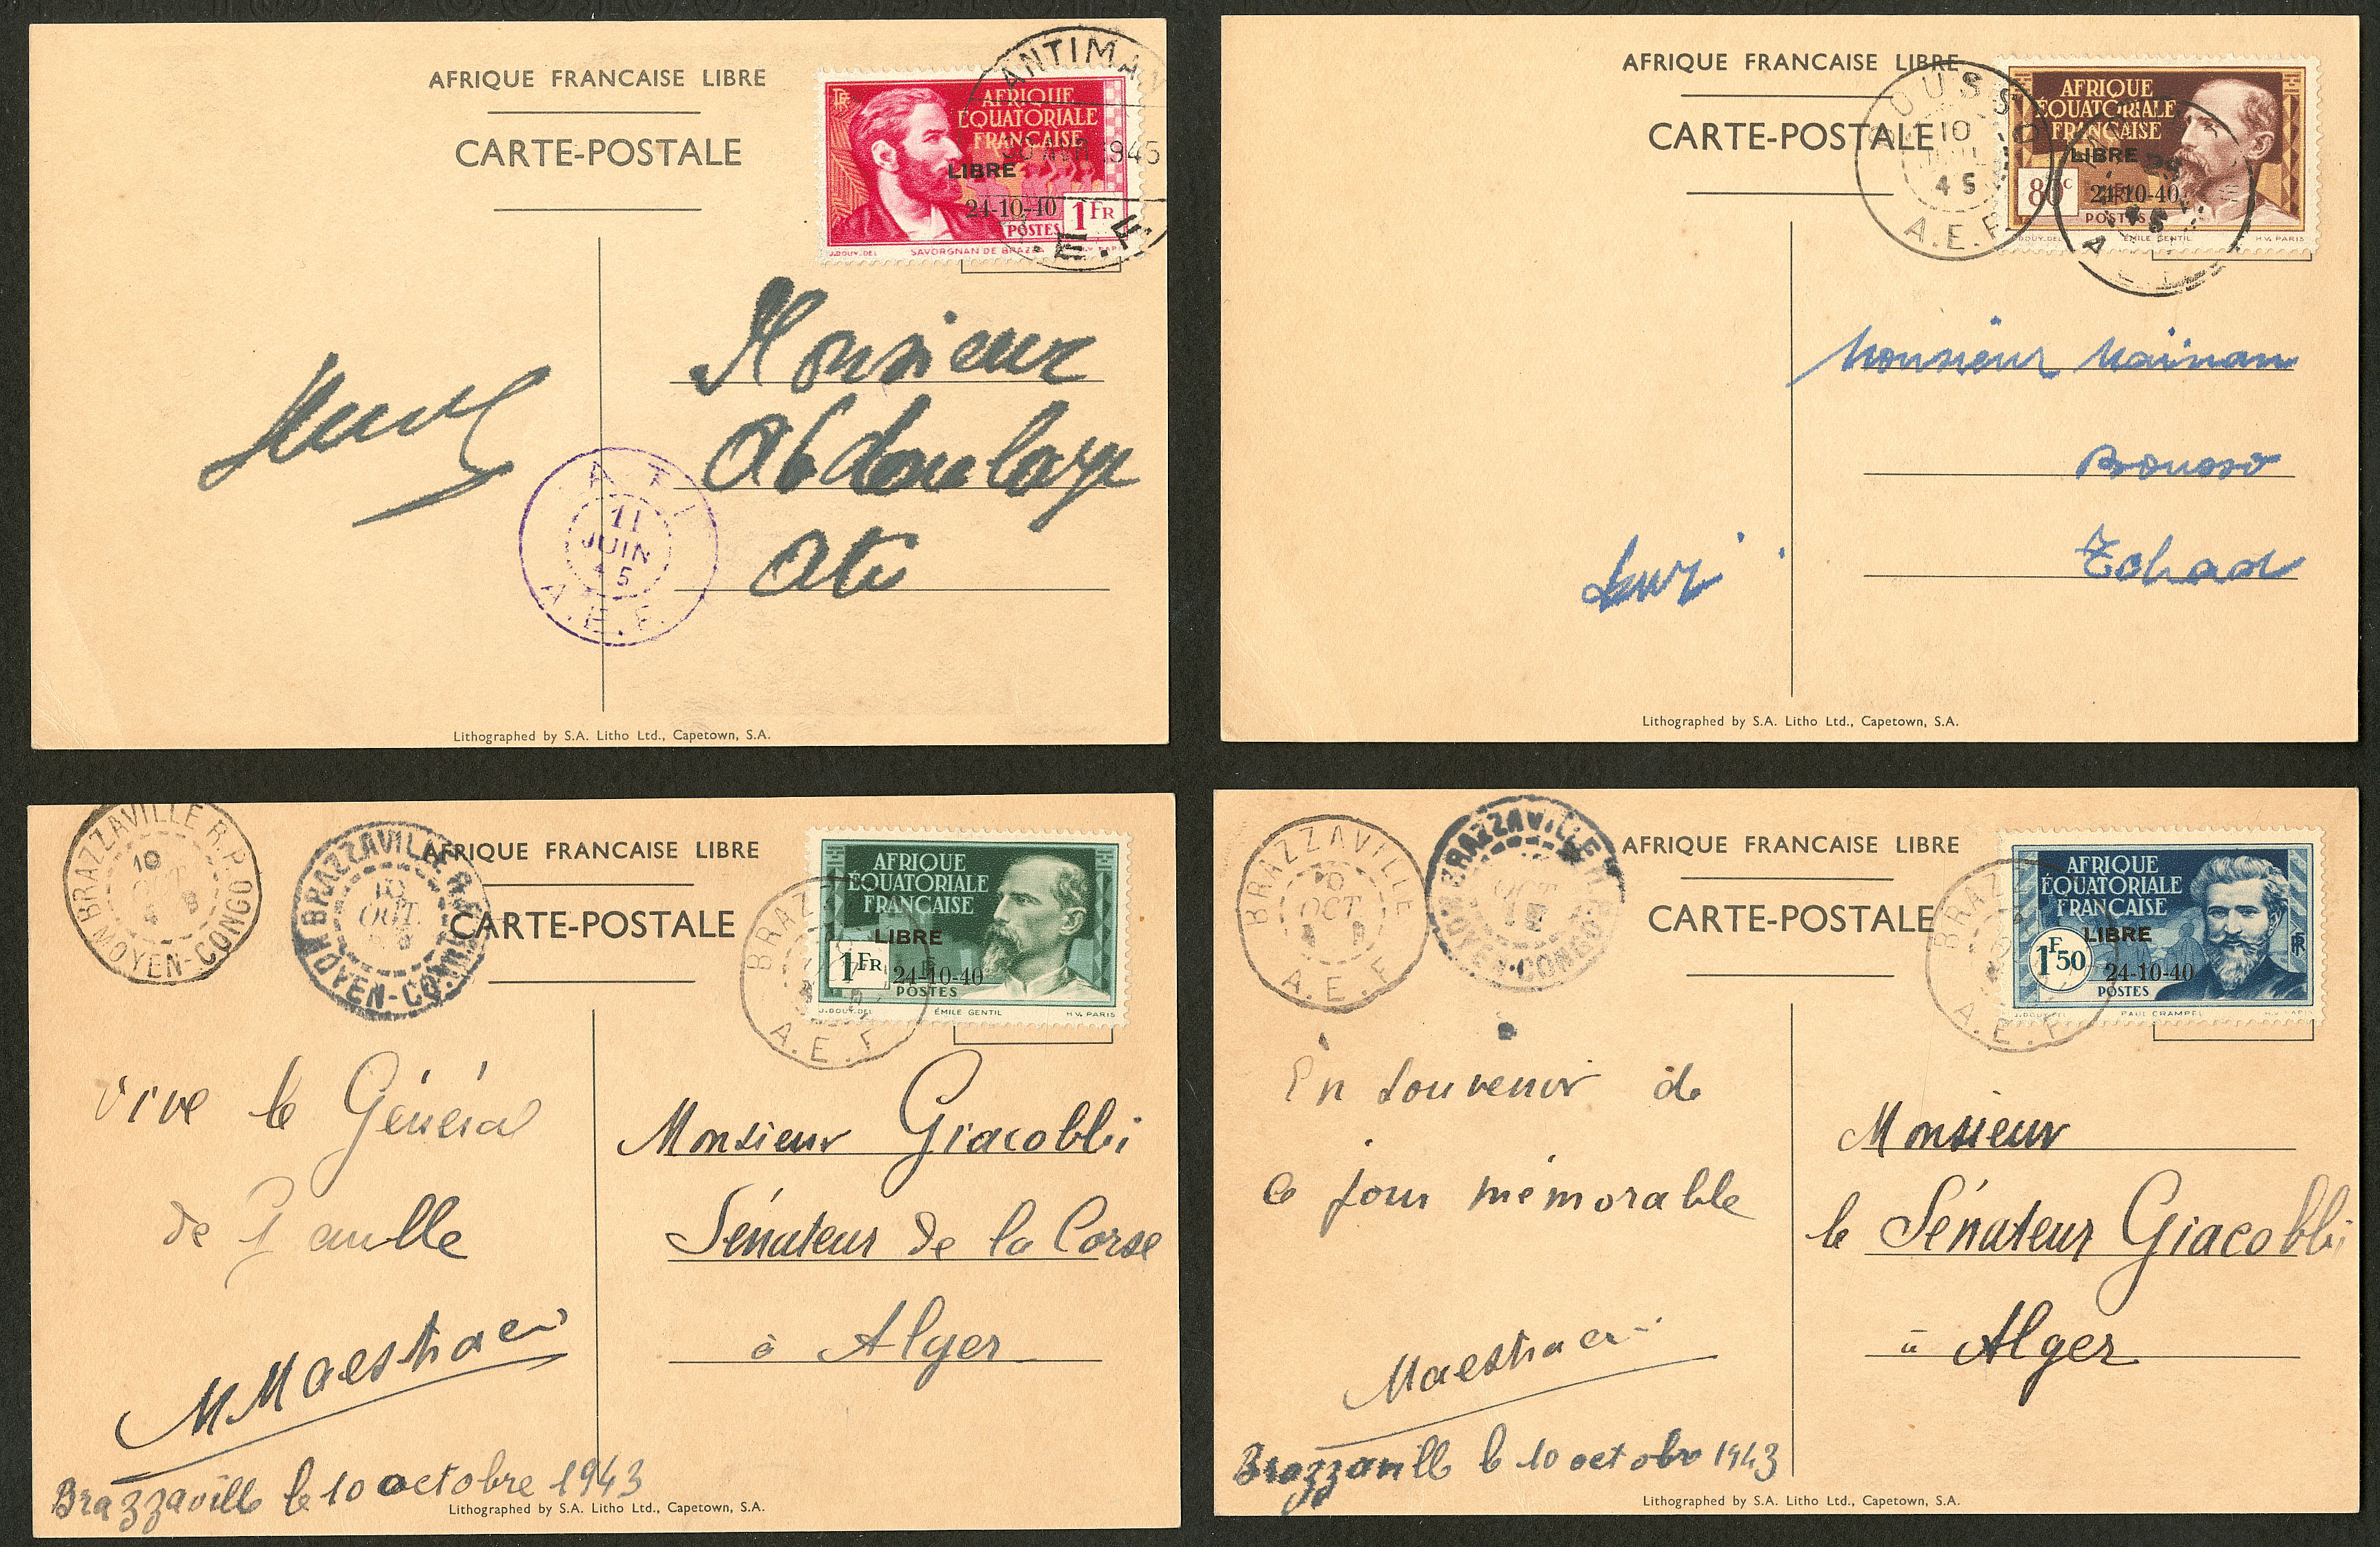 AFRIQUE FRANCAISE LIBRE
CARTE-POSTALE
RF
AFRIQUE
ÉQUATORIALE
FRANÇAISE
LIBRE
24-10-40
1FR
POSTES
J.DOUY.DEL
SAVORGNAN DE BRAZZ
ANTIMA
945
E.F.
Monsieur
Abdoulaye
Ati
ATI
11
JUIN
45
A.E.F.
Lithographed by S.A. Litho Ltd., Capetown, S.A.
AFRIQUE FRANCAISE LIBRE
CARTE-POSTALE
AFRIQUE
ÉQUATORIALE
FRANÇAISE
LIBRE
80c
24-10-40
POSTES
DOUY.DEL
ÉMILE GENTIL
H.V. PARIS
OUSSO
10
45
A.E.F.
Monsieur Mainam
Bousso
Tchad
Lithographed by S.A. Litho Ltd., Capetown, S.A.
BRAZZAVILLE R.P.
10
OCT
43
MOYEN-CONGO
BRAZZAVILLE R.P.
10
OCT.
MOYEN-CONGO
AFRIQUE FRANCAISE LIBRE
CARTE-POSTALE
AFRIQUE
ÉQUATORIALE
FRANÇAISE
LIBRE
1FR
24-10-40
POSTES
J.DOUY.DEL
ÉMILE GENTIL
H.V. PARIS
BRAZZ
A.E.F
Vive le Général
de Gaulle
MMaestracci
Brazzaville le 10 octobre 1943
Monsieur Giacobbi
Sénateur de la Corse
à Alger
Lithographed by S.A. Litho Ltd., Capetown, S.A.
BRAZZAVILLE
10
OCT
A.E.F
BRAZZAVILLE R.P.
OCT
MOYEN-CONGO
AFRIQUE FRANCAISE LIBRE
CARTE-POSTALE
AFRIQUE
ÉQUATORIALE
FRANÇAISE
LIBRE
1F50
24-10-40
POSTES
RF
J.DOUY.DEL
PAUL CRAMPEL
H.V. PARIS
BRAZ
A.E.F
En souvenir de
ce jour mémorable
Maestracci
Brazzaville le 10 octobre 1943
Monsieur
le Sénateur Giacobbi
à Alger
Lithographed by S.A. Litho Ltd., Capetown, S.A.